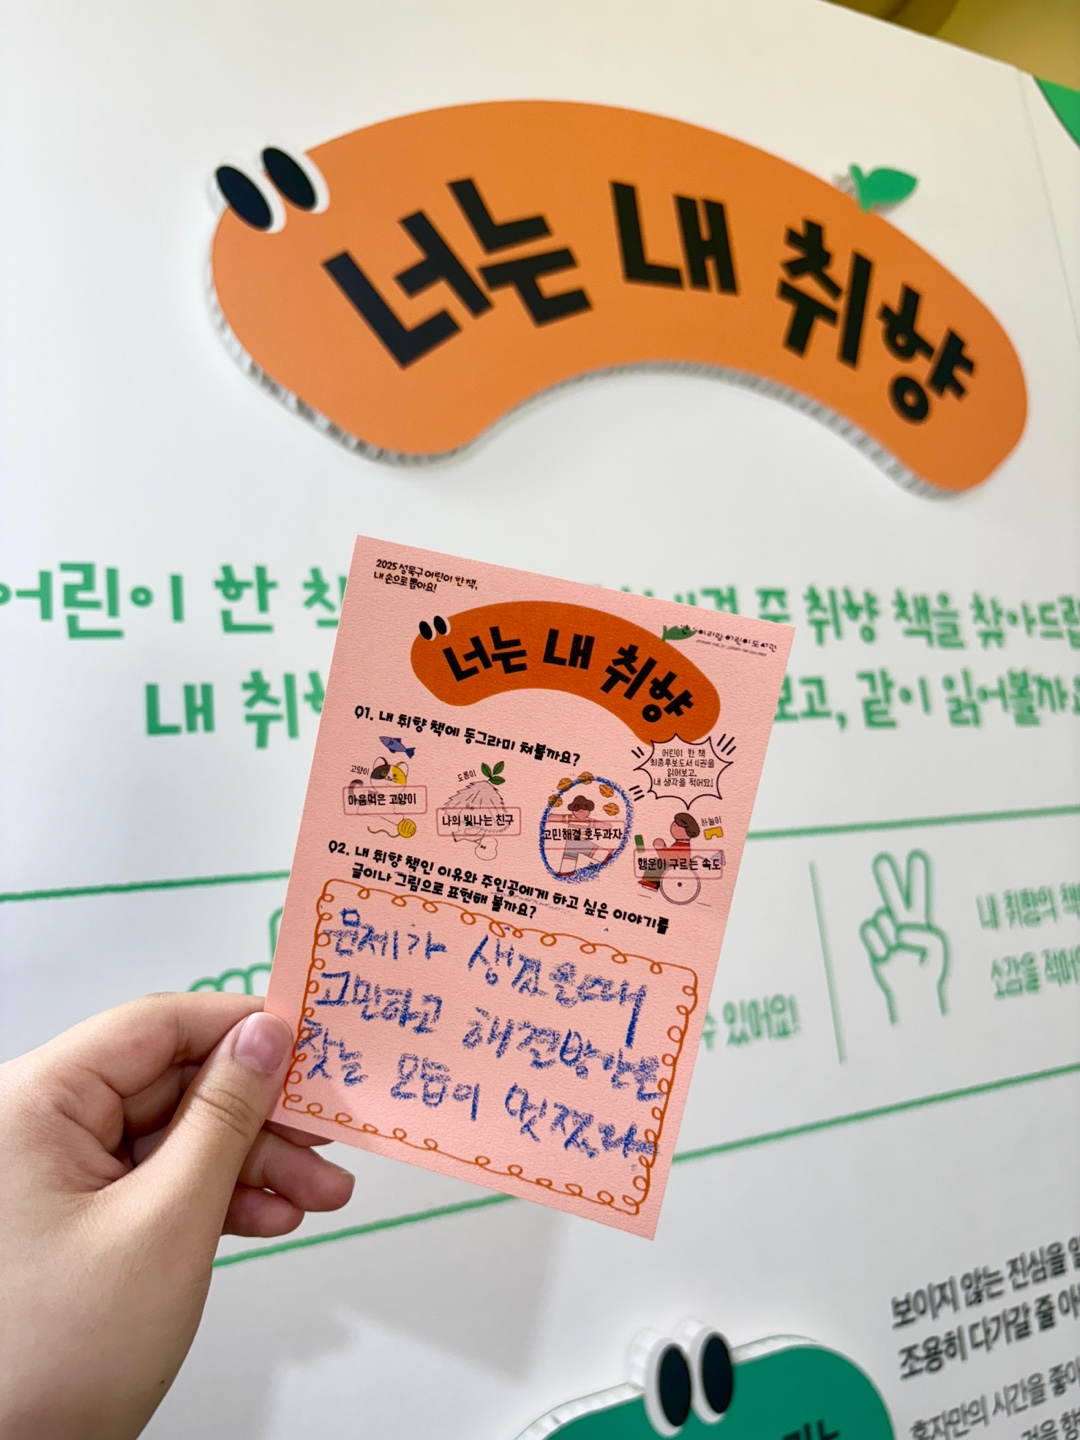 너는 내 취향
어린이 한 책
주 취향 책을 찾아드립
내 취향
보고, 같이 읽어볼까요
2025 성북구 어린이 한 책,
내 손으로 뽑아요!
아리랑 어린이 도서관
너는 내 취향
Q1. 내 취향 책에 동그라미 쳐볼까요?
어린이 한 책
최종후보도서 4권을
읽어보고,
내 생각을 적어요!
고양이
마음먹은 고양이
도롱이
나의 빛나는 친구
고민해결 호두과자
하늘이
행운이 구르는 속도
Q2. 내 취향 책인 이유와 주인공에게 하고 싶은 이야기를
글이나 그림으로 표현해 볼까요?
문제가 생겼을때
고민하고 해결방안을
찾는 모습이 멋졌다
수 있어요!
내 취향의 책
소감을 적어
보이지 않는 진심을
조용히 다가갈 줄 아
혼자만의 시간을 좋아